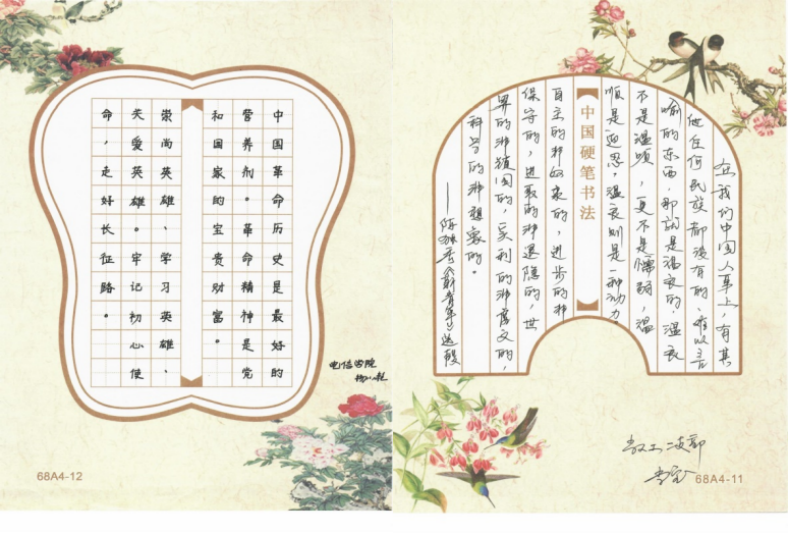 中国革命历史是最好的
营养剂。革命精神是党
和国家的宝贵财富。
崇尚英雄、学习英雄、
关爱英雄。牢记初心使
命,走好长征路。
电信学院
68A4-12
在我们中国人身上,有其
他任何民族都没有的、难以言
喻的东西,那就是温良的,温良
不是温顺,更不是懦弱,温
顺是迎忍,温良则是一种动力。
中国硬笔书法
自主的非奴隶的,进步的非
保守的,进取的非退隐的,世
界的非锁国的,实利的非虚文的,
科学的非想象的。
——陈独秀《新青年》选段
教工二支部
68A4-11